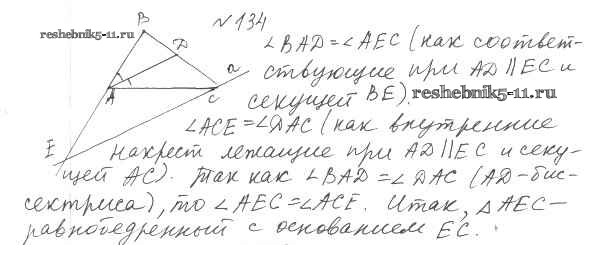 №134
B
reshebnik5-11.ru
D
a
A
C
E
∠BAD=∠AEC (как соответ-
ствующие при AD∥EC и
секущей BE).
reshebnik5-11.ru
∠ACE=∠DAC (как внутренние
накрест лежащие при AD∥EC и секу-
щей AC). Так как ∠BAD=∠DAC (AD-бис-
сектриса), то ∠AEC=∠ACE. Итак, △AEC-
равнобедренный с основанием EC.